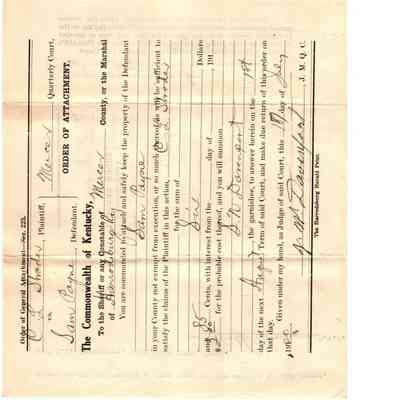 Order of General Attachment—Sec. 223.
Mercer Quarterly Court.
C L Rhodes Plaintiff,
vs.
Sam Payne, Defendant.
ORDER OF ATTACHMENT.
The Commonwealth of Kentucky,
To the Sheriff or any Constable of Mercer County, or the Marshal
of Harrodsburg Ky
You are commanded to attach and safely keep the property of the Defendant
Sam Payne
in your County not exempt from execution, or so much thereof as will be sufficient to
satisfy the claims of the Plaintiff in this action, C L Rhodes
for the sum of
Dollars
and 85 Cents, with interest from the day of 191
for the probable cost thereof, and you will summon
the garnishee, to answer herein on the 1st
day of the next August Term of said Court, and make due return of this order on
that day.
Given under my hand, as Judge of said Court, this day of July
J. M. Q. C.
The Harrodsburg Herald Print.